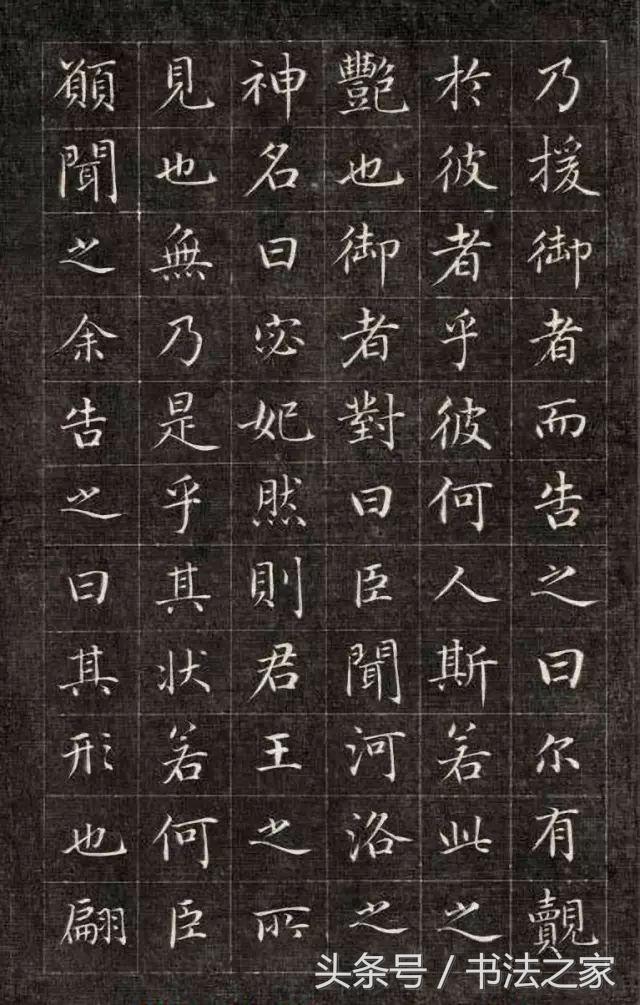 乃援御者而告之曰尔有觌
於彼者乎彼何人斯若此之
豔也御者對曰臣聞河洛之
神名曰宓妃然則君王之所
見也無乃是乎其状若何臣
願聞之余告之曰其形也翩
头条号／书法之家